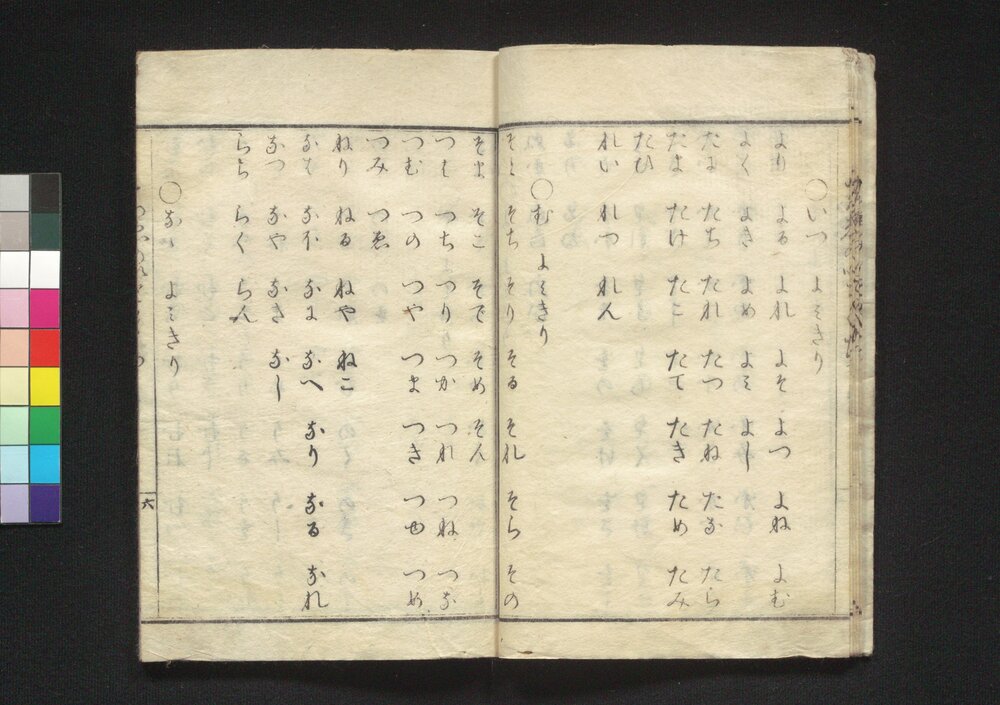 〇いつ よミきり
より よる よれ よそ よつ よね よむ
よく よき よめ よミ よし
たま たち たれ たつ たね たな たら
たよ たけ たこ たて たき ため たみ
たひ
れい れつ れん
〇む よミきり
そと そち そり そる それ そら その
そま そこ そで そめ そん
つち つり つか つれ つね つな
つむ つの つや つま つき つゆ つめ
つみ つゑ
ねり ねる ねや ねこ
なほ なま なへ なり なる なれ
なつ なや なき なし
らち らく らん
〇な よミきり
六